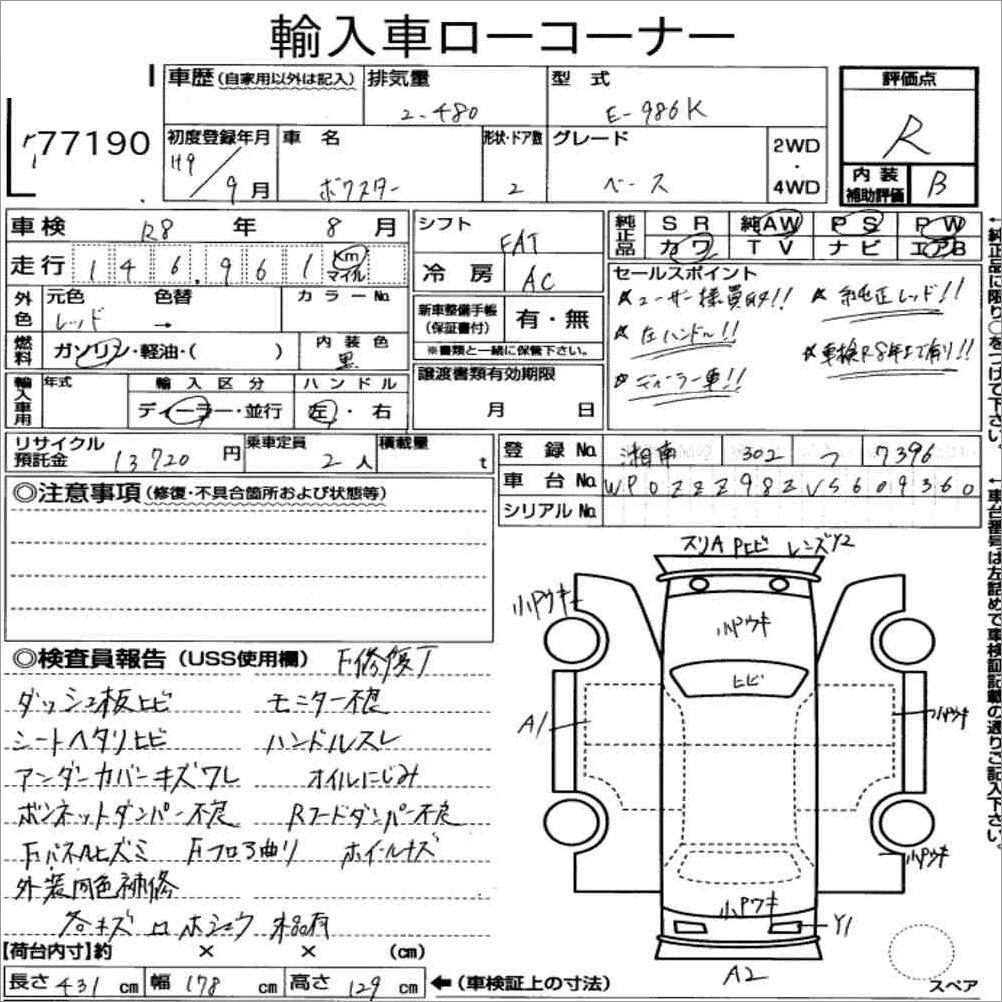 輸入車ローコーナー
77190
車歴 (自家用以外は記入) 排気量 型式 評価点
2-480 E-986K R
初度登録年月 車名 形状・ドア数 グレード 2WD・4WD
H9/9月 ボクスター 2 ベース
内装補助評価 B
車検 R8年 8月
走行 146,961 Km マイル
シフト FAT
冷房 AC
純正品 SR 純AW PS PW
カワ TV ナビ エアB
外色 元色 色替 カラーNo.
レッド →
燃料 ガソリン・軽油・( ) 内装色 黒
新車整備手帳(保証書付) 有・無
※書類と一緒に保管下さい。
セールスポイント
★ユーザー様買取!! ★純正レッド!!
★左ハンドル!!
★車検R8年まで有り!!
★ディーラー車!!
輸入車用 年式 輸入区分 ハンドル
ディーラー・並行 左・右
譲渡書類有効期限
月 日
リサイクル預託金 13720円 乗車定員 2人 積載量 t
登録No. 湘南 302 う 7396
車台No. WP0ZZZ98ZVS609360
シリアルNo.
◎注意事項(修復・不具合箇所および状態等)
◎検査員報告(USS使用欄) F修復了
ダッシュ板ヒビ モニター不良
シートヘタリヒビ ハンドルスレ
アンダーカバーキズワレ オイルにじみ
ボンネットダンパー不良 Rフードダンパー不良
Fパネルヒズミ Fフロア曲り ホイールキズ
外装同色補修
各キズ ホシュウ
スリA Pヒビ レンズY2
小Pウキ
小Pウキ
ヒビ
A1
小Pウキ
小Pウキ
小Pワキ
Y1
A2
スペア
【荷台内寸】約 × × (cm)
長さ 431 cm 幅 178 cm 高さ 129 cm ←(車検証上の寸法)
←純正品に限り○をつけて下さい。
←車台番号は左詰めで車検証記載の通りご記入下さい。